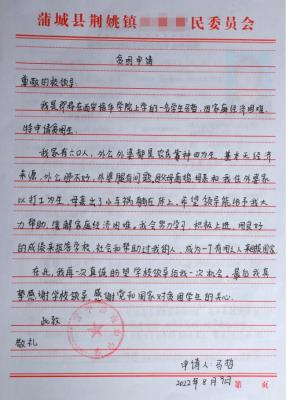 蒲城县荆姚镇 民委员会
贫困申请
尊敬的校领导:
我是 在西安 学院上学的一名学生马哲,因家庭经济困难,
特申请贫困生。
我家有六口人,外公外婆都是农民靠种田为生,基本无经济
来源,外公 不好,外婆腿有问题, 母亲和我在外婆家
以打工为生,母亲出了小车祸躺在床上,希望领导能给予我大
力帮助,缓解家庭经济困难。我会努力学习,积极上进,用良好
的成绩来报答学校,社会和帮助过我的人,成为一个有用之人来报效国家
在此,我再一次真诚的望学校领导给我一次机会,最后我真
挚感谢学校领导,感谢党和国家对贫困学生的关心。
此致
敬礼
申请人:马哲
2022年8月9日
第 页